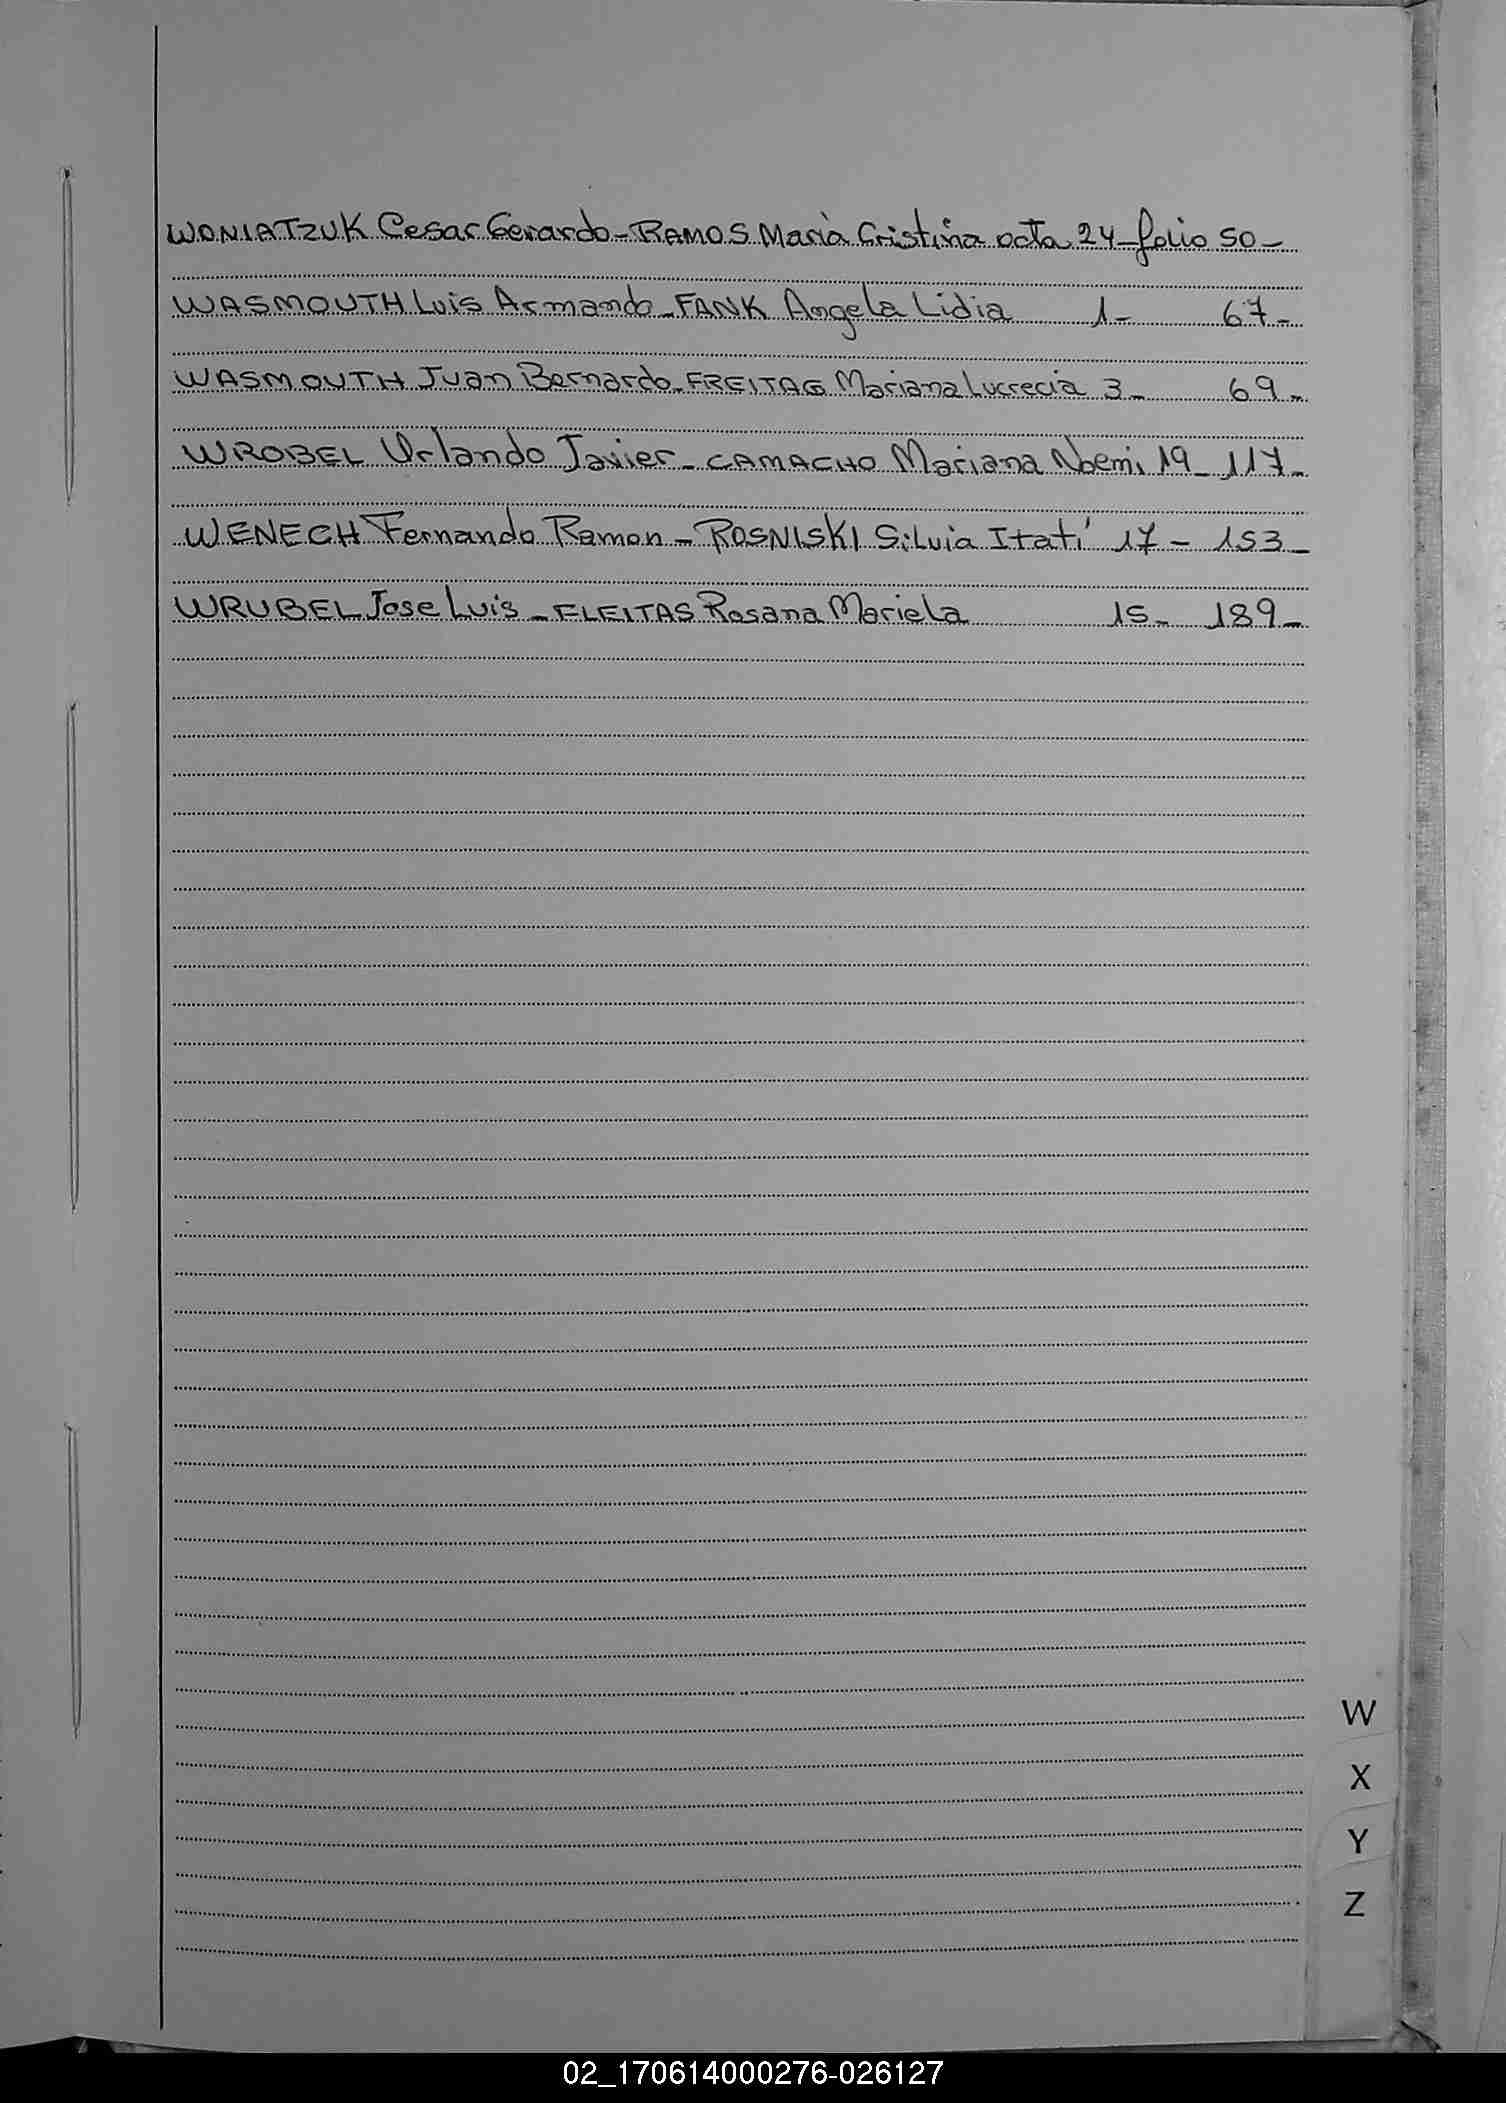 WONIATZUK Cesar Gerardo - RAMOS Marià Cristina acta 24 - folio 50 -
WASMOUTH Luis Armando - FANK Angela Lidia 1 - 67 -
WASMOUTH Juan Bernardo - FREITAG Mariana Lucrecia 3 - 69 -
WROBEL Orlando Javier - CAMACHO Mariana Noemi 19 - 117 -
WENECH Fernando Ramon - ROSNISKI Silvia Itatí 17 - 153 -
WRUBEL Jose Luis - FLEITAS Rosana Mariela 15 - 189 -
W
X
Y
Z
02_170614000276-026127